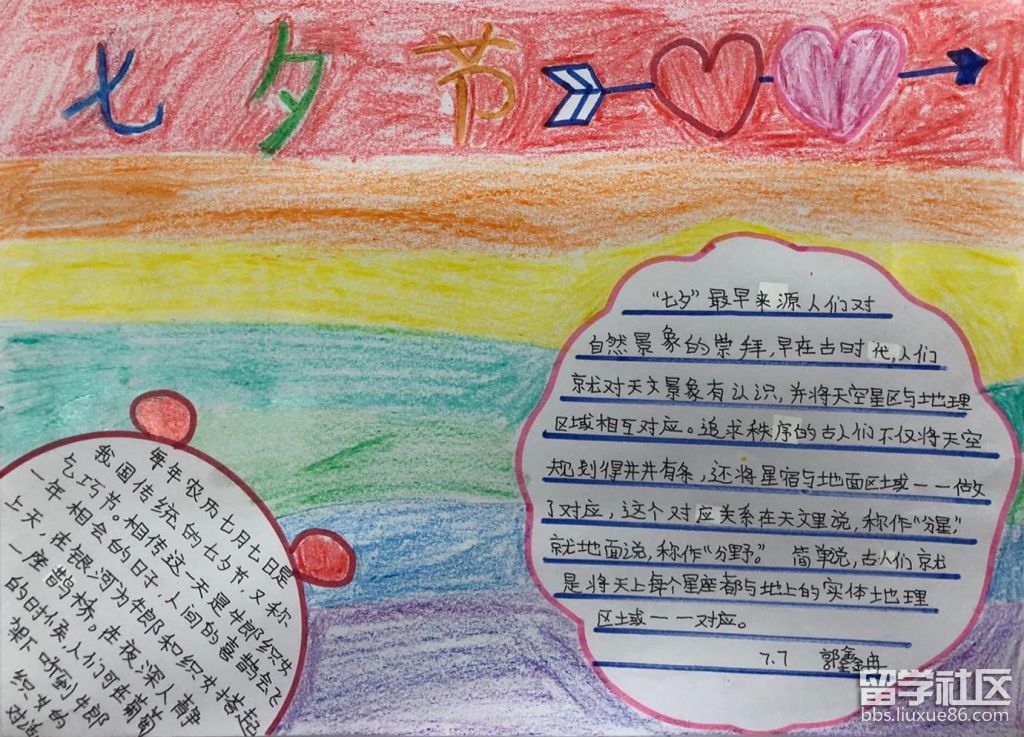 七夕节
“七夕”最早来源人们对
自然景象的崇拜,早在古时代,人们
就对天文景象有认识,并将天空星区与地理
区域相互对应。追求秩序的古人们不仅将天空
规划得井井有条,还将星宿与地面区域一一做
了对应,这个对应关系在天文里说,称作“分星”,
就地面说,称作“分野”。 简单说,古人们就
是将天上每个星座都与地上的实体地理
区域一一对应。
7.7 郭鑫冉
每年农历七月七日是
我国传统的七夕节,又称
乞巧节。相传这一天是牛郎织女
一年相会的日子,人间的喜鹊会飞
上天,在银河为牛郎和织女搭起
一座鹊桥。在夜深人静
的时候,人们可在葡萄
架下听到牛郎
织女的
对话
留学社区
bbs.liuxue86.com